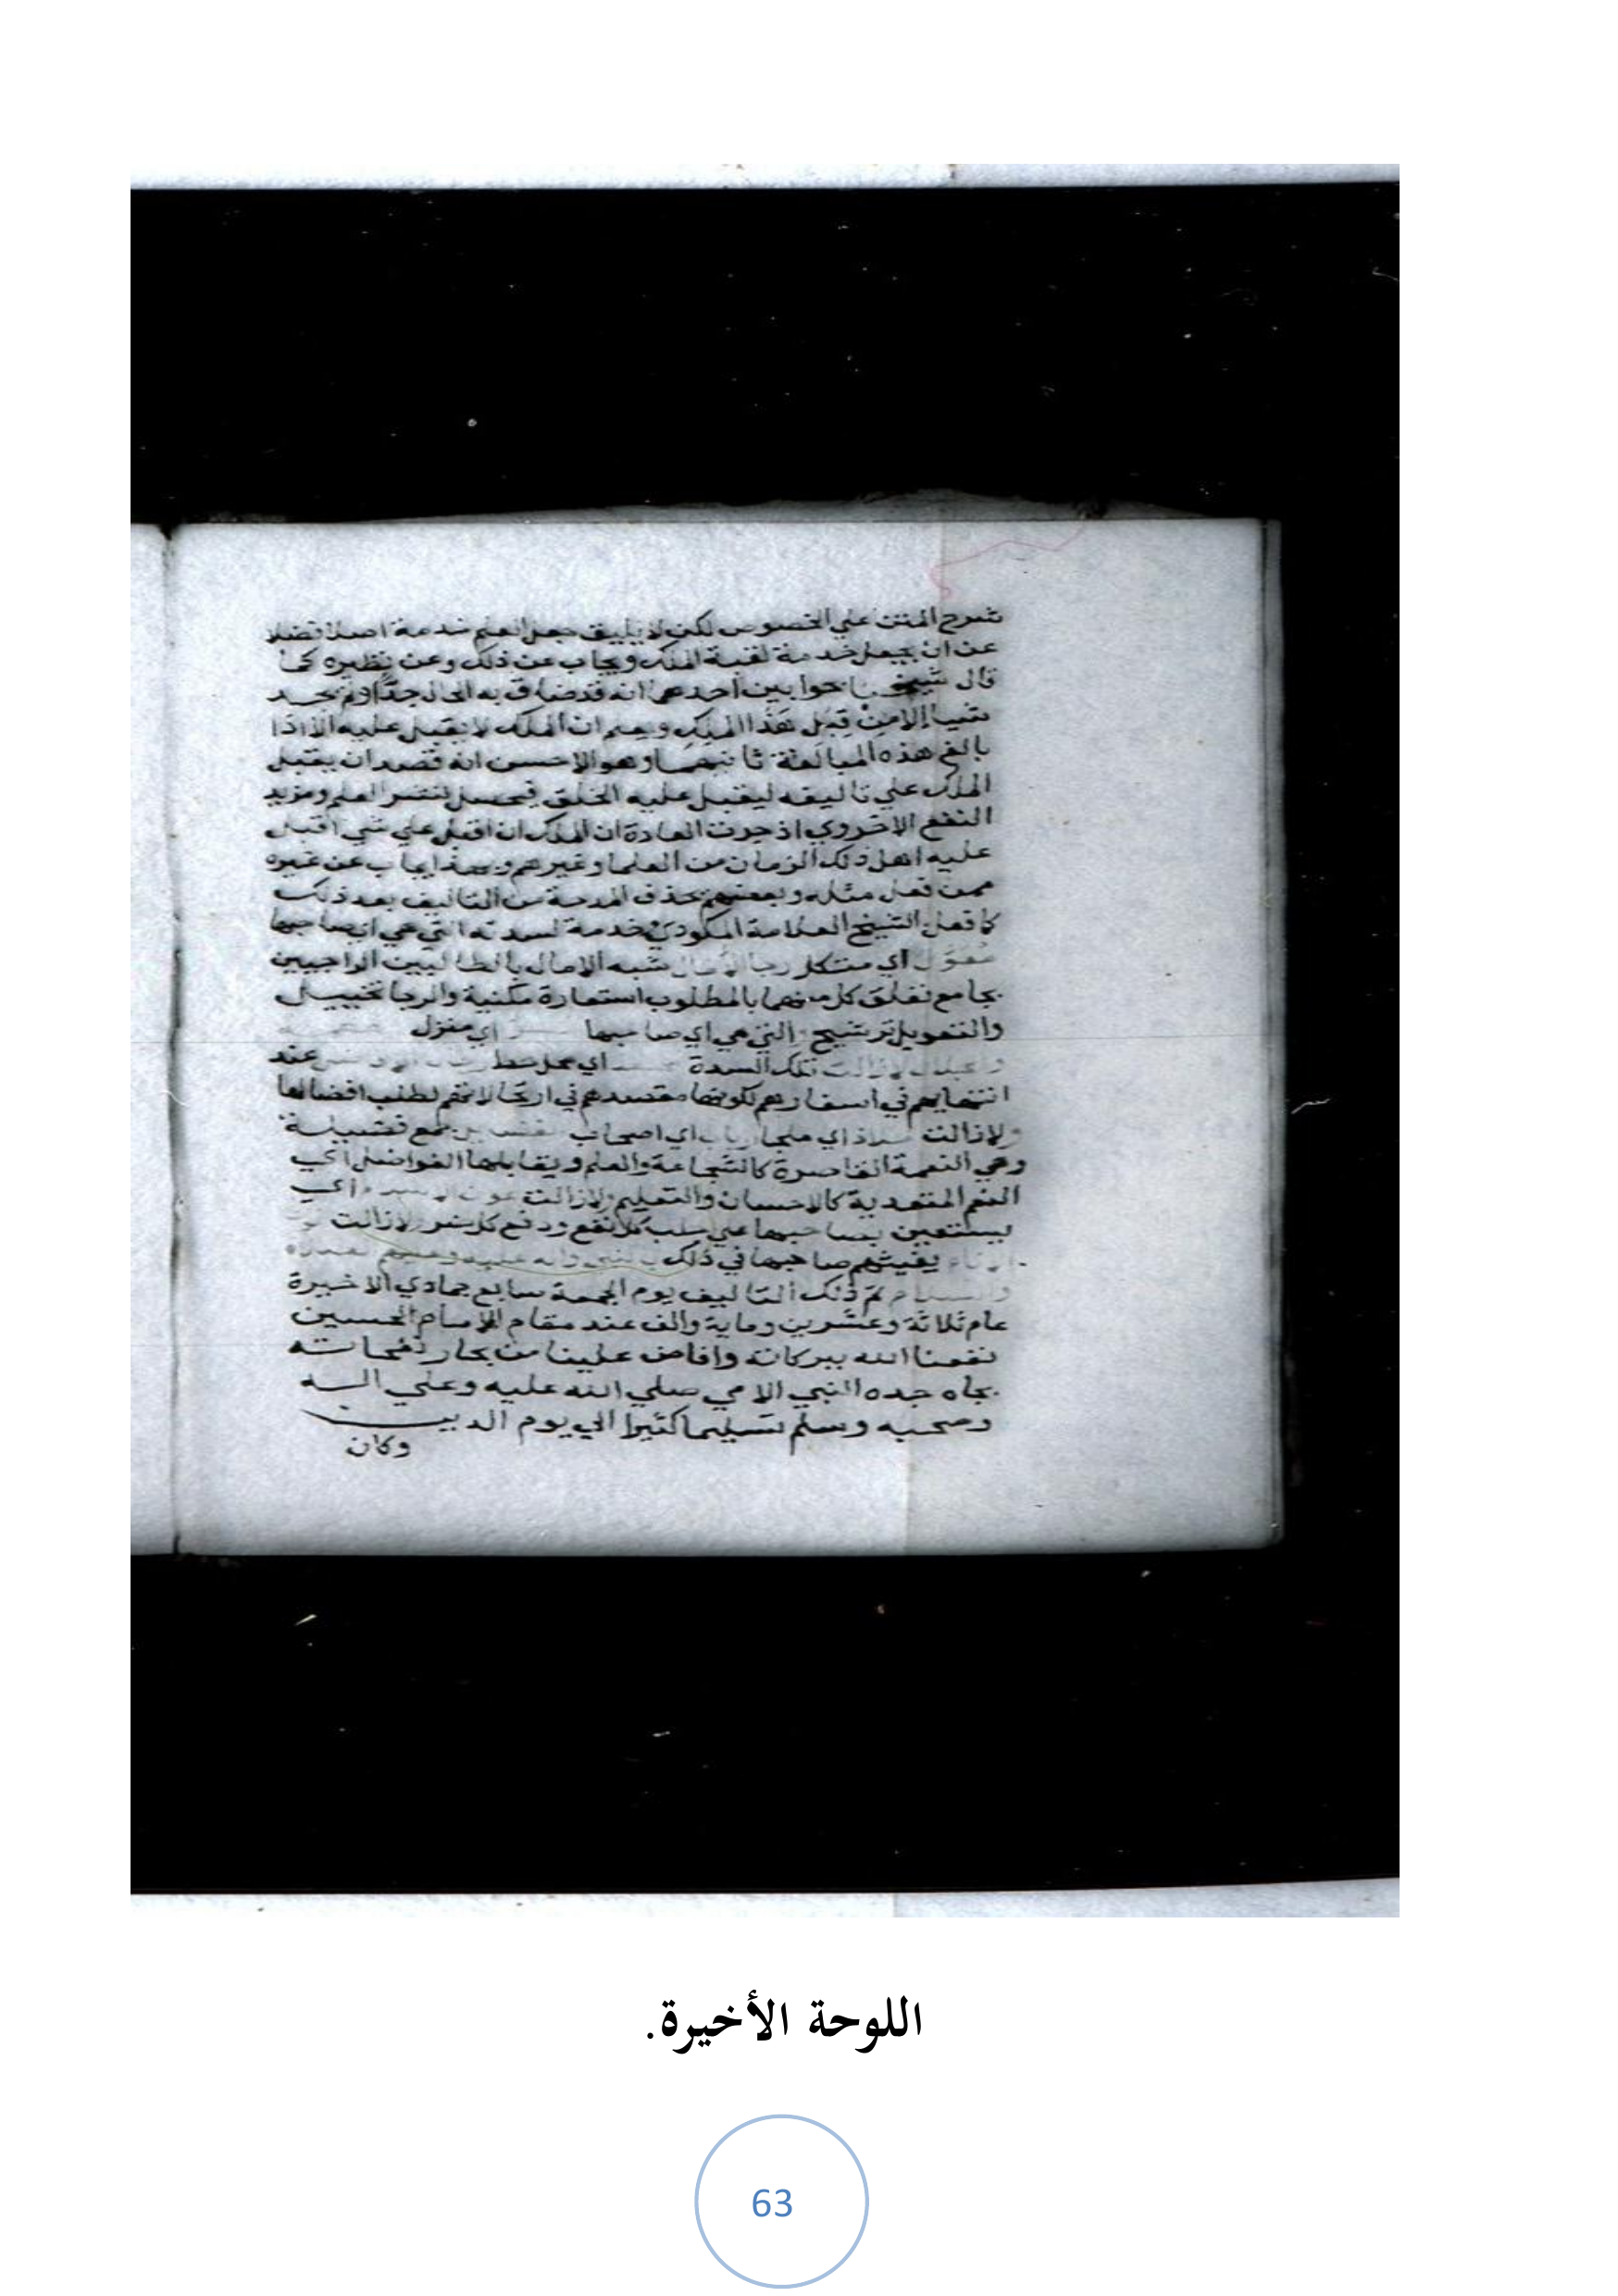 شرح المتن علي الخصوص لكن لا يليق جعل العلم خدمة اصلا فضلا
عن ان يجعل خدمة لقبة الملك ويجاب عن ذلك وعن نظيره كما
قال شيخنا بجوابين احدهما انه قد ضاق به الحال جدا ولم يجد
شيا إلا من قبل هذا الملك وعلم ان الملك لا يقبل عليه الا اذا
بالغ هذه المبالغة ثانيهما وهو الاحسن انه قصد ان يقبل
الملك علي تاليفه ليقبل عليه الخلق فيحصل نشر العلم ومزيد
النفع الاخروي اذ جرت العادة ان الملك ان اقبل علي شي اقبل
عليه اهل ذلك الزمان من العلما وغيرهم وبهذا يجاب عن غيره
ممن فعل مثله وبعضهم حذف المدحة من التاليف بعد ذلك
كما فعل الشيخ العلامة المكودي خدمة لسدته التي هي اي صاحبها
معول اي متكل رجا الأمال شبه الامال بالطالبين الراجيين
بجامع تعلق كل منهما بالمطلوب استعارة مكنية والرجا تخييل
والتعويل ترشيح التي هي اي صاحبها اي منزل
لازالت تلك السدة اي محل حط عند
انتهايهم في اسفارهم لكونها مقصدهم في ارتحالاتهم لطلب افضالها
ولازالت ملاذ اي ملجا ارباب اي اصحاب جمع فضيلة
وهي النعمة القاصرة كالشجاعة والعلم ويقابلها الفواضل اي
النعم المتعدية كالاحسان والتعليم ولازالت اي
يستعين بصاحبها علي جلب كل نفع ودفع كل شر لازالت
يغيثهم صاحبها في ذلك بالنبي واله عليه وعليهم
والسلام تم ذلك التاليف يوم الجمعة سابع جمادي الاخيرة
عام ثلاثة وعشرين وماية والف عند مقام الامام الحسين
نفعنا الله ببركاته وافاض علينا من بحار نفحاته
بجاه جده النبي الامي صلي الله عليه وعلي اله
وصحبه وسلم تسليما كثيرا الي يوم الدين
وكان
اللوحة الأخيرة.
63